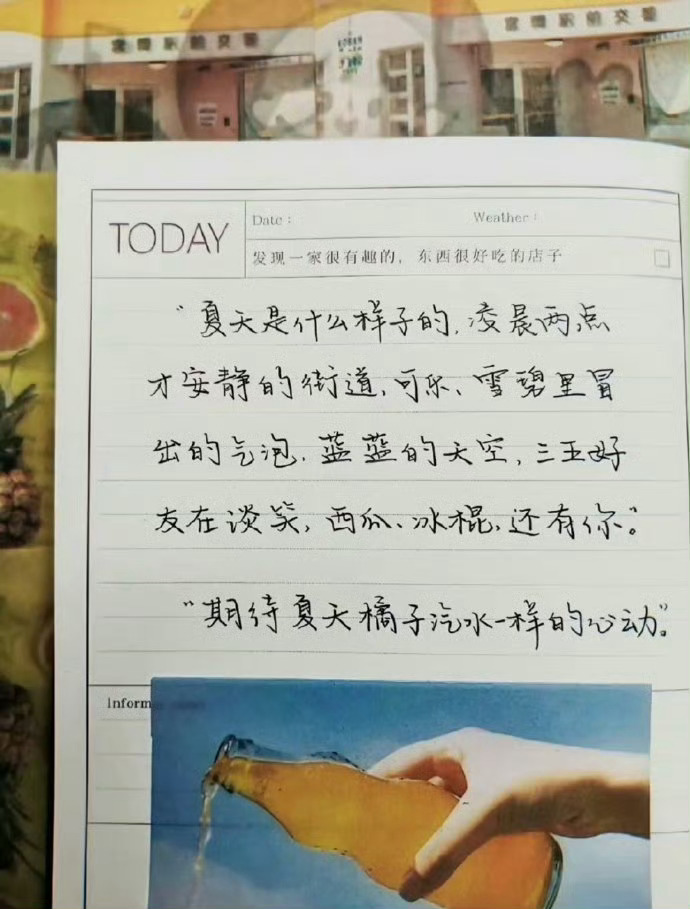 TODAY
Date：
Weather：
发现一家很有趣的，东西很好吃的店子
“夏天是什么样子的，凌晨两点
才安静的街道，可乐、雪碧里冒
出的气泡，蓝蓝的天空，三五好
友在谈笑，西瓜、冰棍，还有你。”
“期待夏天橘子汽水一样的心动”。
Inform